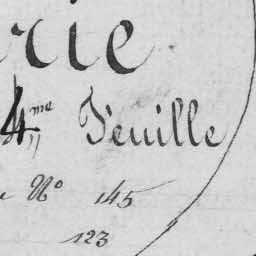 rie
4me Feuille
Nº 145
123